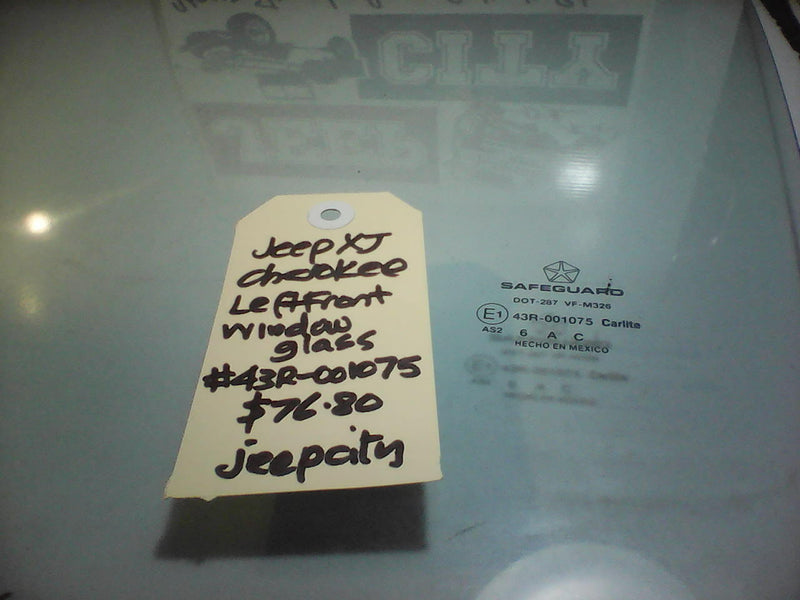 CITY
JEEP
Jeep XJ
Cherokee
Left Front
Window
glass
#43R-001075
$76.80
jeepcity
SAFEGUARD
DOT-287 VF-M326
E1 43R-001075 Carlite
AS2 6 A C
HECHO EN MEXICO